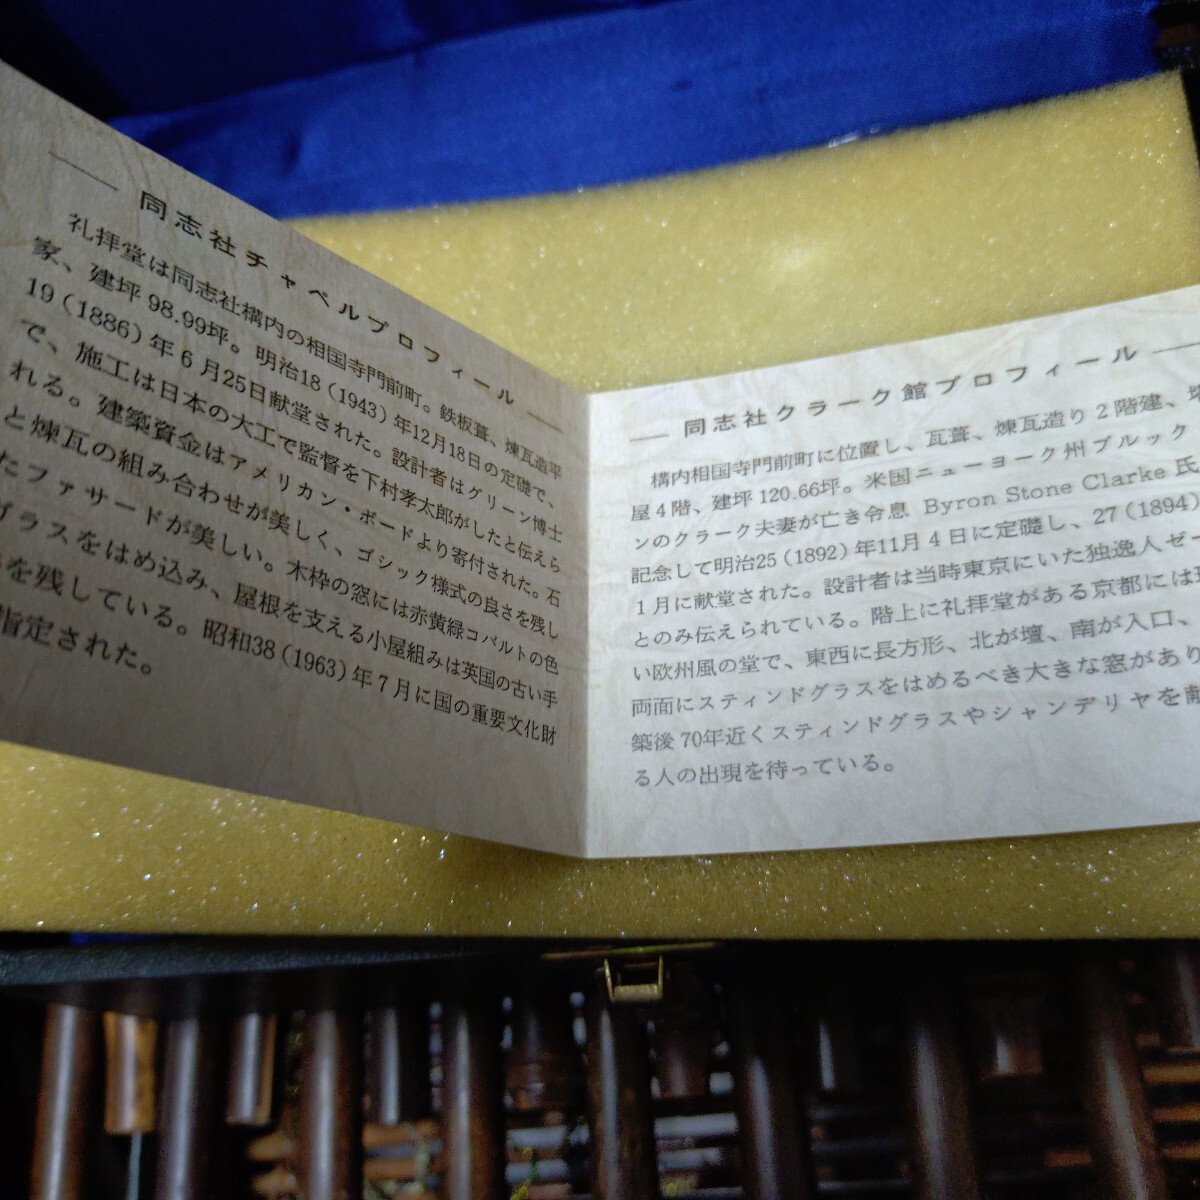 同志社チャペルプロフィール
礼拝堂は同志社構内の相国寺門前町。鉄板葺、煉瓦造平
家、建坪98.99坪。明治18(1943)年12月18日の定礎で、
19(1886)年6月25日献堂された。設計者はグリーン博士
で、施工は日本の大工で監督を下村孝太郎がしたと伝えら
れる。建築資金はアメリカン・ボードより寄付された。石
と煉瓦の組み合わせが美しく、ゴシック様式の良さを残し
たファサードが美しい。木枠の窓には赤黄緑コバルトの色
グラスをはめ込み、屋根を支える小屋組みは英国の古い手
を残している。昭和38(1963)年7月に国の重要文化財
指定された。
同志社クラーク館プロフィール
構内相国寺門前町に位置し、瓦葺、煉瓦造り2階建、塔
屋4階、建坪120.66坪。米国ニューヨーク州ブルック
ンのクラーク夫妻が亡き令息 Byron Stone Clarke 氏
記念して明治25(1892)年11月4日に定礎し、27(1894)
1月に献堂された。設計者は当時東京にいた独逸人ゼー
とのみ伝えられている。階上に礼拝堂がある京都には
い欧州風の堂で、東西に長方形、北が壇、南が入口、
両面にスティンドグラスをはめるべき大きな窓があり
築後70年近くスティンドグラスやシャンデリヤを献
る人の出現を待っている。